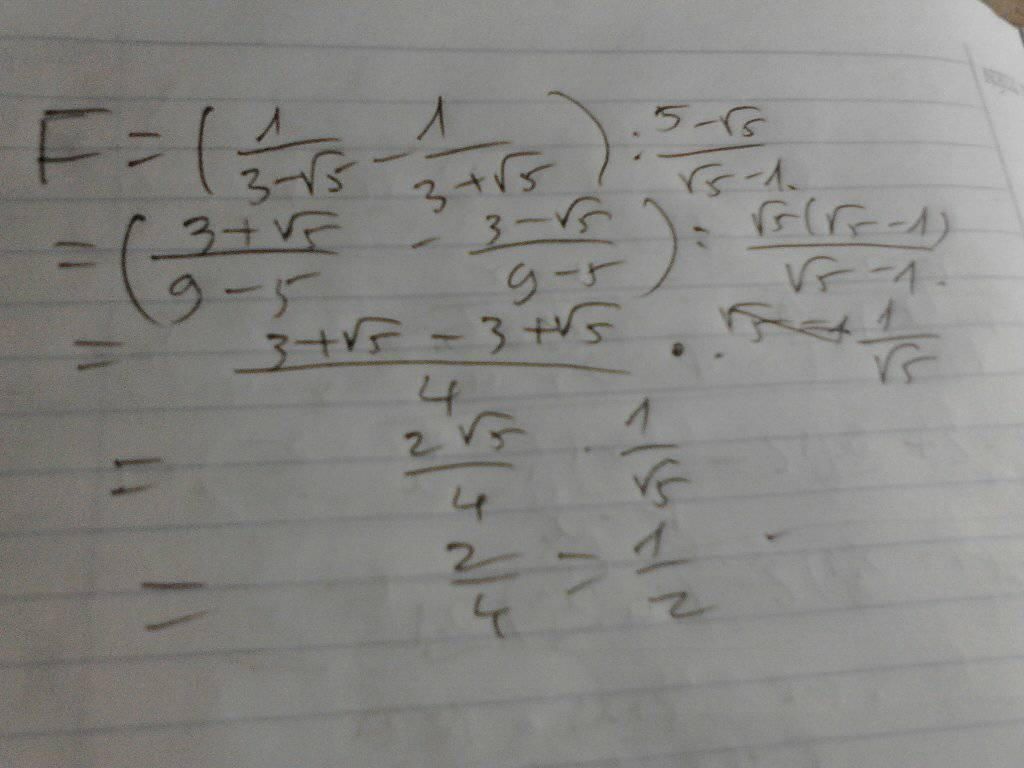 F = (1/(3-√5) - 1/(3+√5)) : (5-√5)/(√5-1)
= ((3+√5)/(9-5) - (3-√5)/(9-5)) : √5(√5-1)/(√5-1)
= (3+√5-3+√5)/4 · 1/√5
= 2√5/4 · 1/√5
= 2/4 = 1/2